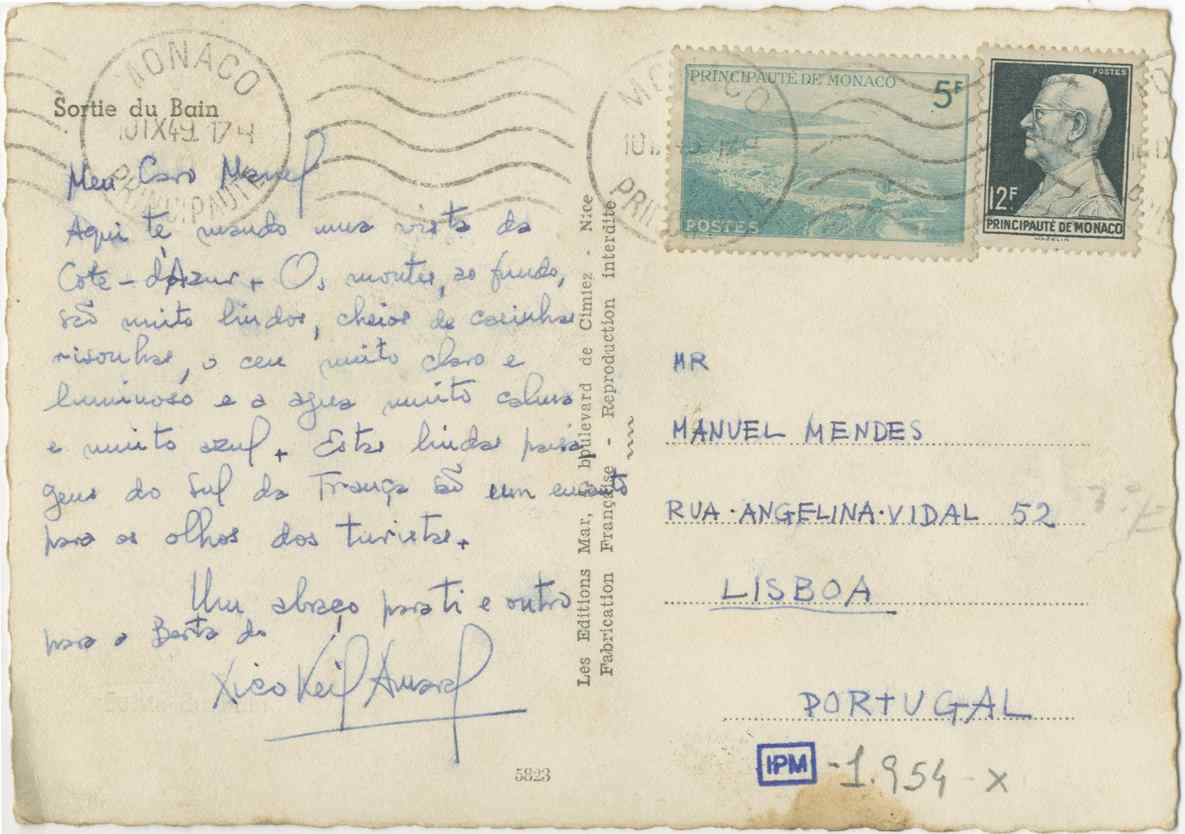 MONACO
10 IX 49. 17 H
PRINCIPAUTÉ
Sortie du Bain
Meu Caro Manel
Aqui te mando uma vista da
Cote-d'Azur. Os montes, ao fundo,
são muito lindos, cheios de casinhas
risonhas, o ceu muito claro e
luminoso e a agua muito calma
e muito azul. Estas lindas paisa
gens do Sul da França são um encanto
para os olhos dos turistas.
Um abraço para ti e outro
para a Berta do
Xico Keil Amaral
5823
Les Editions Mar, boulevard de Cimiez - Nice
Fabrication Française - Reproduction interdite
MONACO
PRINCIPAUTÉ DE MONACO
5F
POSTES
POSTES
12F
PRINCIPAUTÉ DE MONACO
MR
MANUEL MENDES
RUA·ANGELINA·VIDAL 52
LISBOA
PORTUGAL
IPM -1.954-X